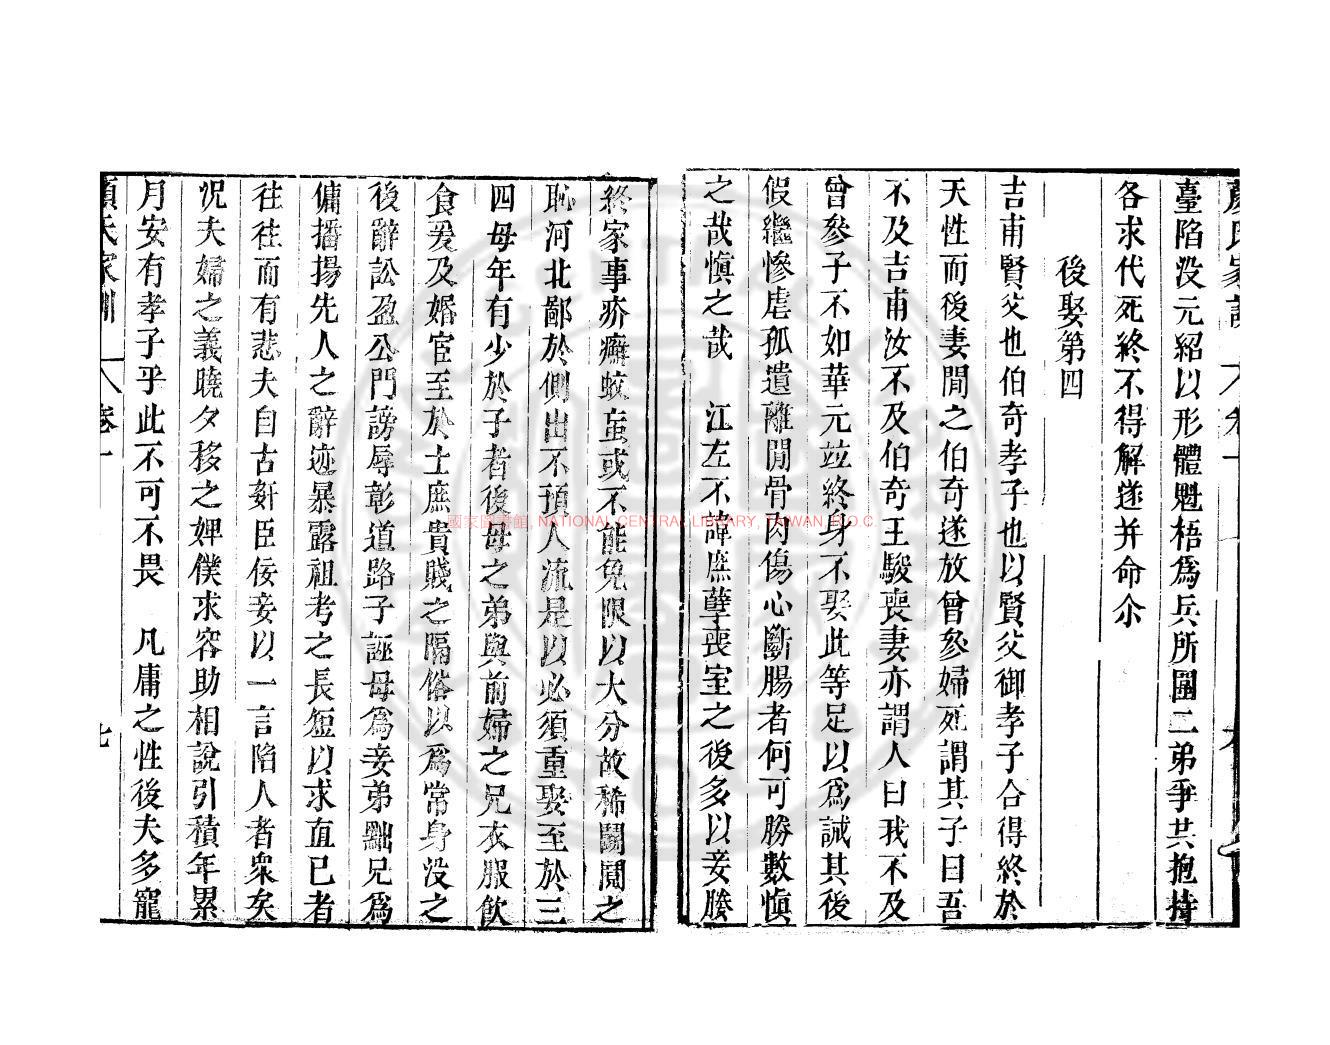 顏氏家訓 卷一
臺陷没元紹以形體魁梧爲兵所圍二弟爭共抱持
各求代死終不得解遂并命尒
後娶第四
吉甫賢父也伯奇孝子也以賢父御孝子合得終於
天性而後妻閒之伯奇遂放曾參婦死謂其子曰吾
不及吉甫汝不及伯奇王駿喪妻亦謂人曰我不及
曾參子不如華元竝終身不娶此等足以爲誡其後
假繼慘虐孤遺離閒骨肉傷心斷腸者何可勝數愼
之哉愼之哉 江左不諱庶孽喪室之後多以妾媵
終家事疥癬蚊䖟或不能免限以大分故稀鬭鬩之
恥河北鄙於側出不預人流是以必須重娶至於三
四母年有少於子者後母之弟與前婦之兄衣服飮
食爰及婚宦至於士庶貴賤之隔俗以爲常身没之
後辭訟盈公門謗辱彰道路子誣母爲妾弟黜兄爲
傭播揚先人之辭迹暴露祖考之長短以求直已者
往往而有悲夫自古奸臣佞妾以一言陷人者衆矣
况夫婦之義曉夕移之婢僕求容助相說引積年累
月安有孝子乎此不可不畏 凡庸之性後夫多寵
顏氏家訓 卷一 七
國家圖書館, NATIONAL CENTRAL LIBRARY, TAIWAN, R.O.C